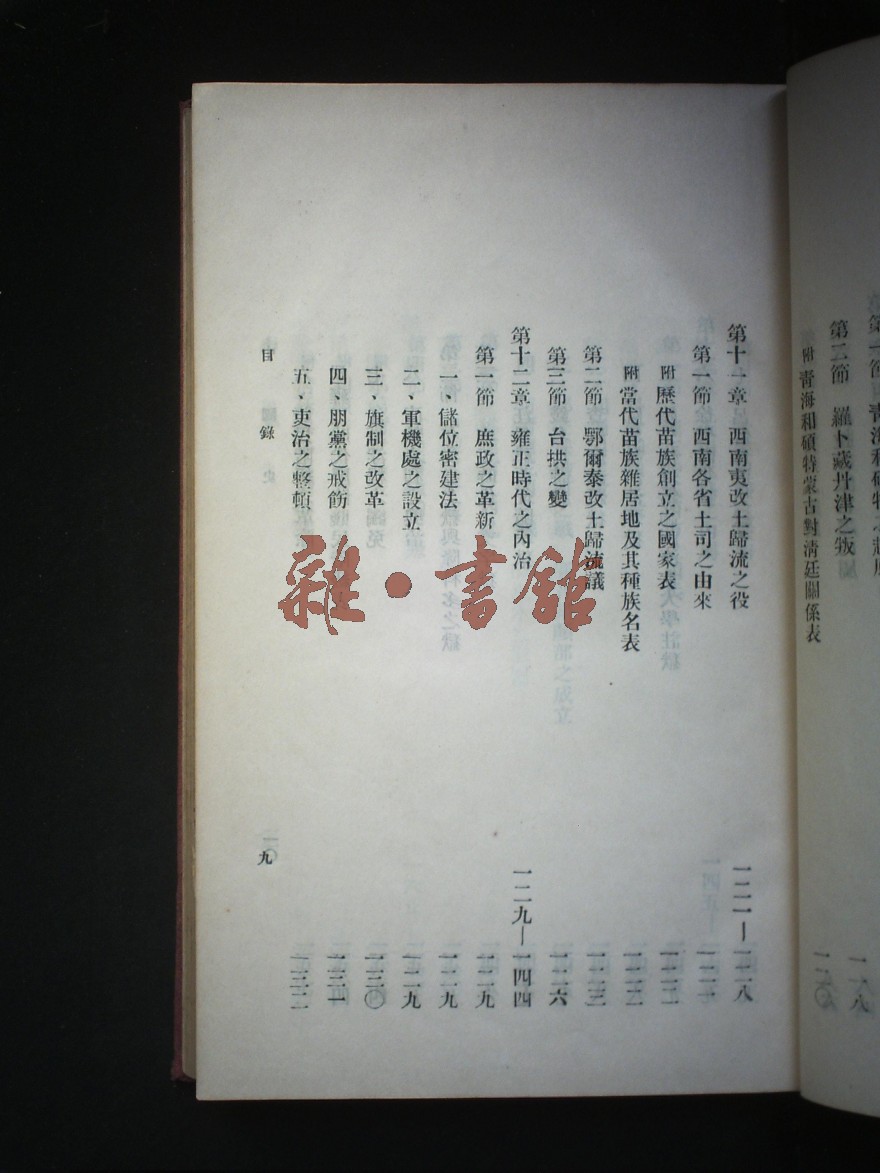 第二節 羅卜藏丹津之叛 一一八
附 青海和碩特蒙古對清廷關係表 一二〇
第十一章 西南夷改土歸流之役 一二一—一二八
第一節 西南各省土司之由來 一二一
附 歷代苗族創立之國家表 一二二
附 當代苗族雜居地及其種族名表 一二二
第二節 鄂爾泰改土歸流議 一二三
第三節 台拱之變 一二六
第十二章 雍正時代之內治 一二九—一四四
第一節 庶政之革新 一二九
一、儲位密建法 一二九
二、軍機處之設立 一二九
三、旗制之改革 一三〇
四、朋黨之戒飭 一三一
五、吏治之整頓 一三二
目錄
九
雜·書館